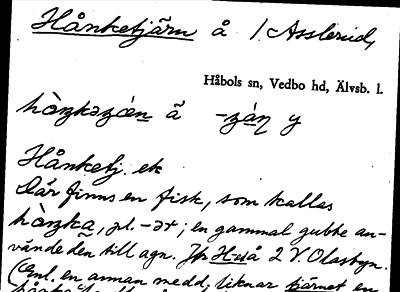 Hånketjärn å 1 Asslerud,
Håbols sn, Vedbo hd, Älvsb. l.
å y
Hånketj. ek
Där finns en fisk, som kallas
hàŋka, pl. -ər; en gammal gubbe an-
vände den till agn. Jfr å 2 V. Olasbyn.
(Enl. en annan medd. liknar tjärnet en